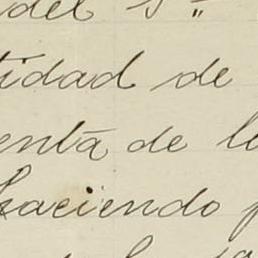 del Sr
tidad de
enta de lo
haciendo p